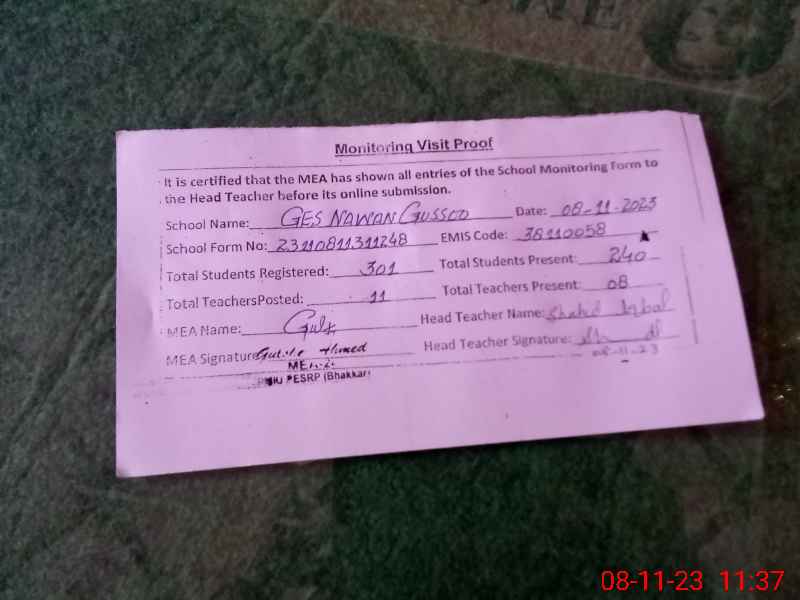 Monitoring Visit Proof
It is certified that the MEA has shown all entries of the School Monitoring Form to
the Head Teacher before its online submission.
School Name: GES NAWAN GUSSOO Date: 08-11-2023
School Form No: 23110811311248 EMIS Code: 38110058
Total Students Registered: 301 Total Students Present: 240
Total TeachersPosted: 11 Total Teachers Present: 08
MEA Name: Head Teacher Name: Shahid Iqbal
MEA Signature Ahmed Head Teacher Signature:
08-11-23
PESRP (Bhakkar)
08-11-23 11:37